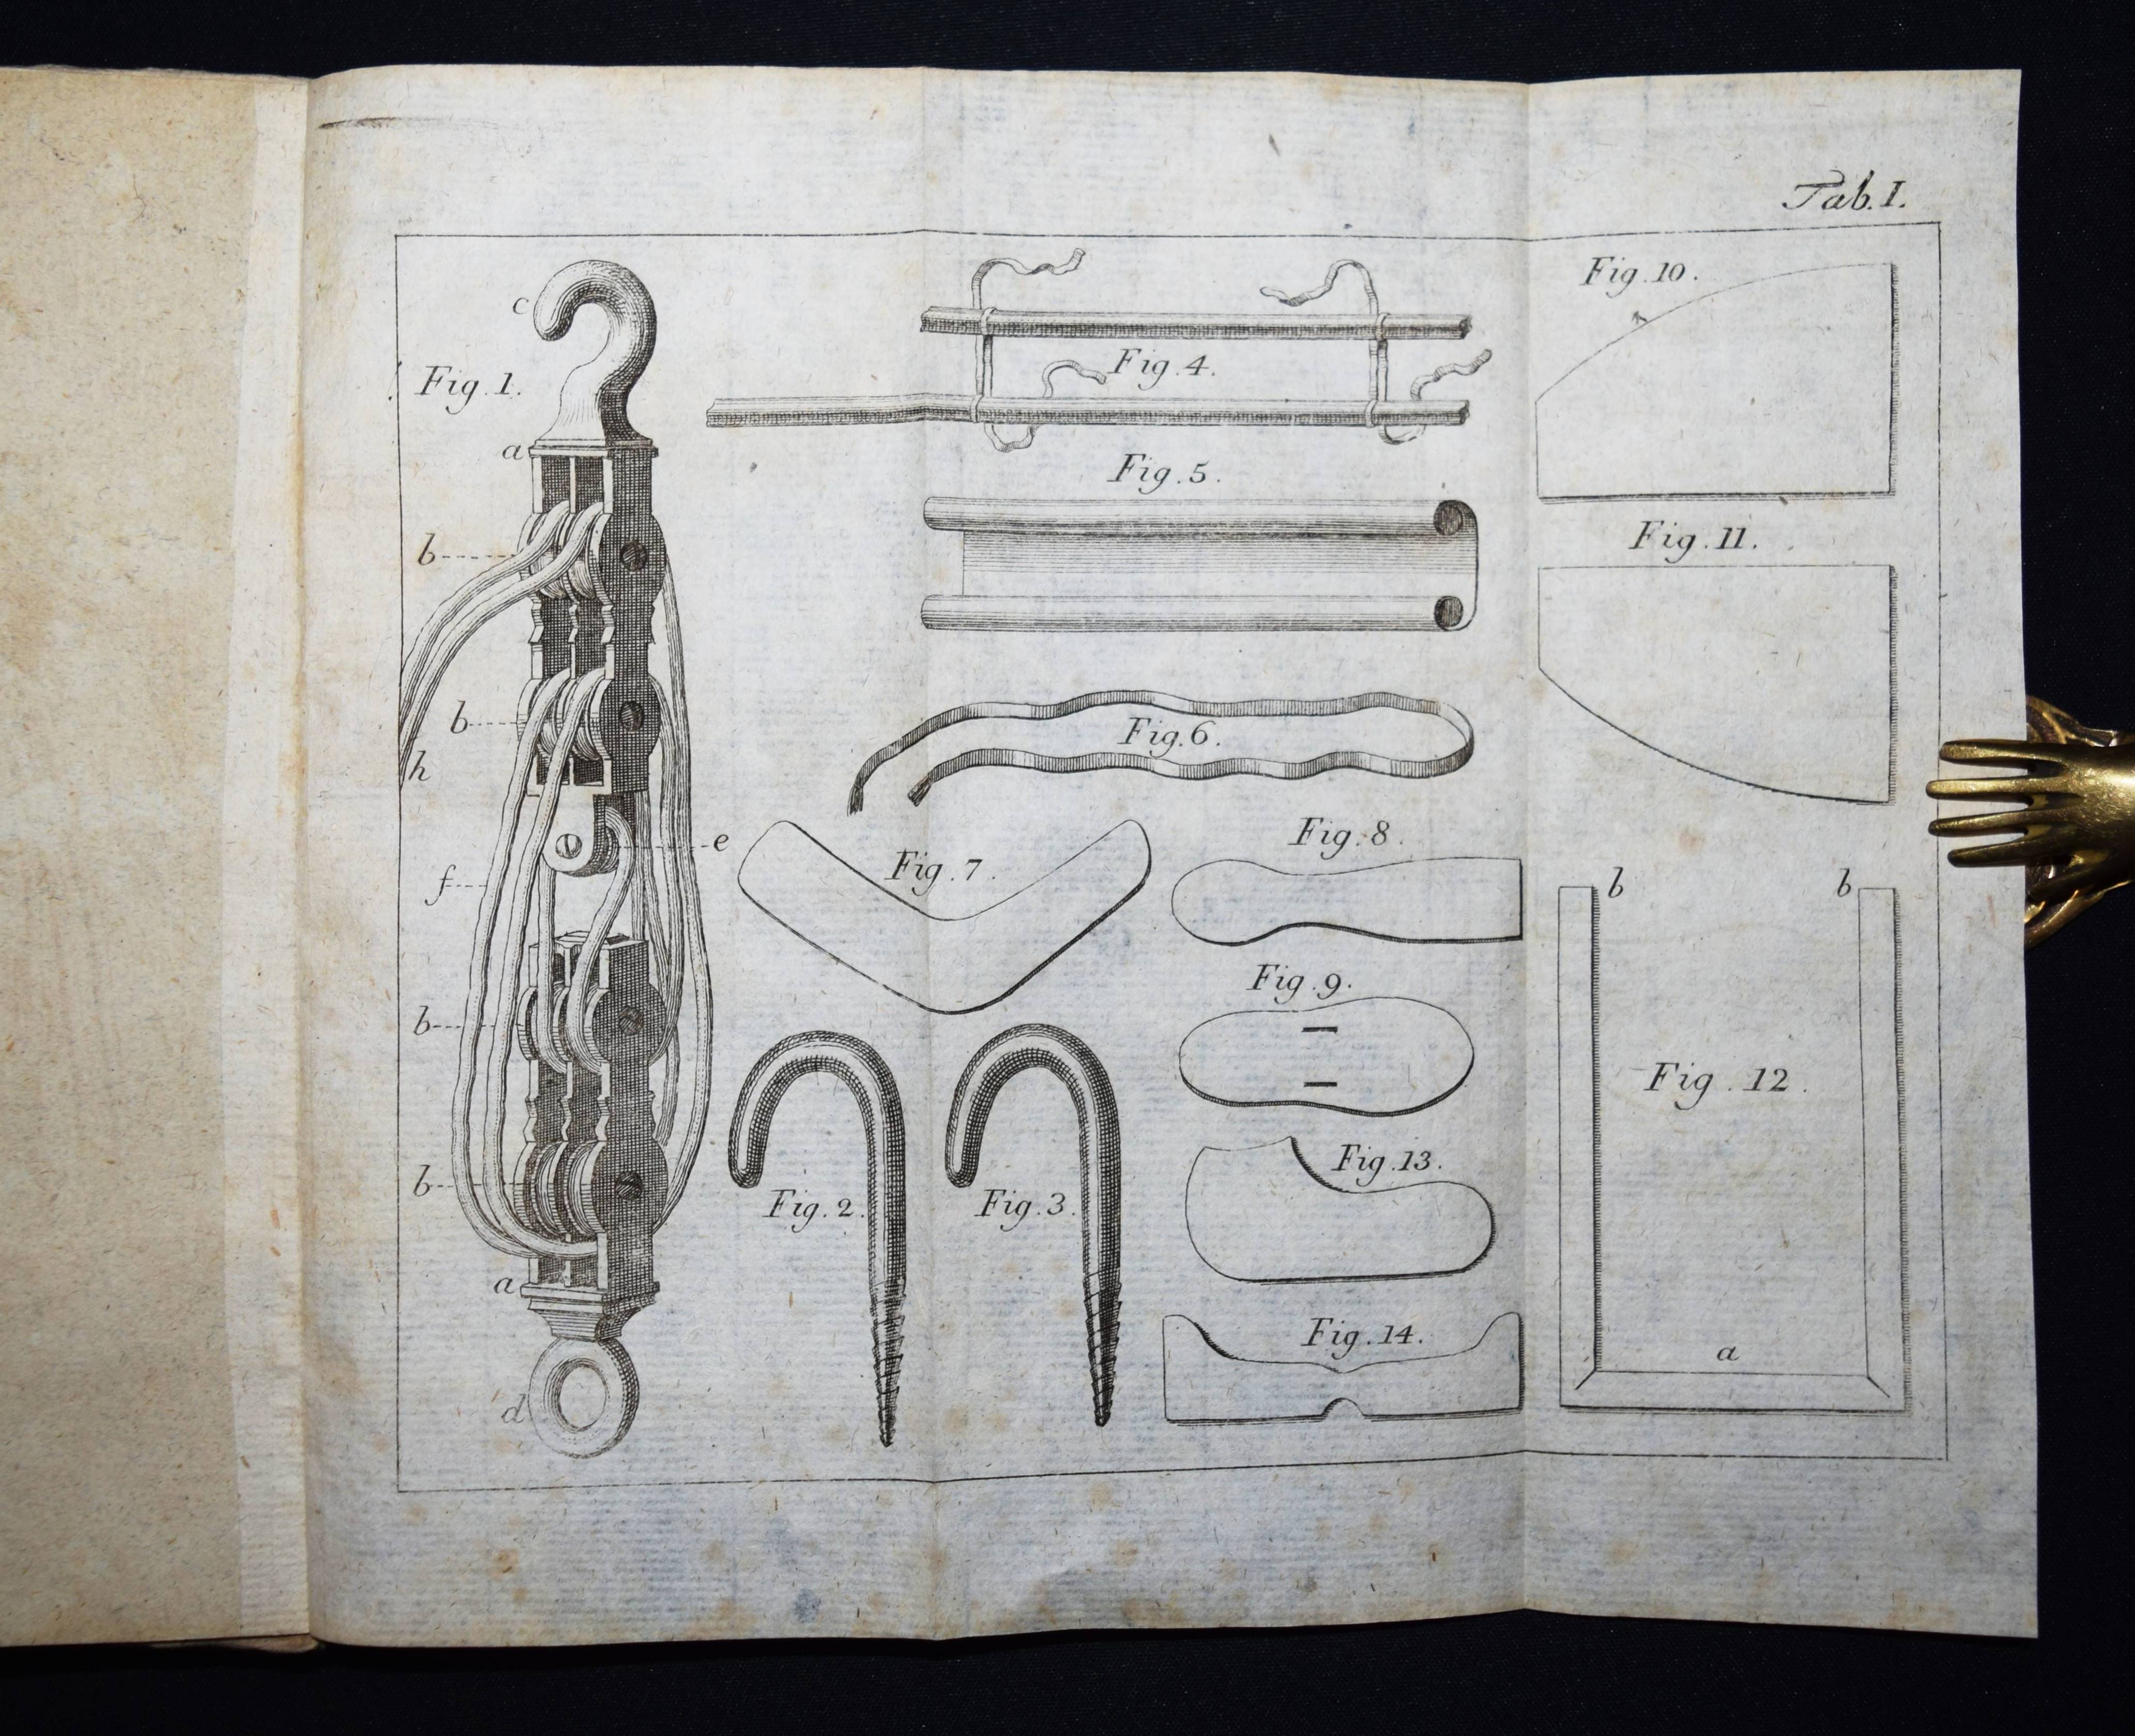 Tab. I.
c
Fig. 1.
a
b
b
h
e
f
b
b
a
d
Fig. 4.
Fig. 5.
Fig. 6.
Fig. 7.
Fig. 8.
Fig. 9.
Fig. 2.
Fig. 3.
Fig. 13.
Fig. 14.
Fig. 10.
Fig. 11.
b
b
Fig. 12.
a